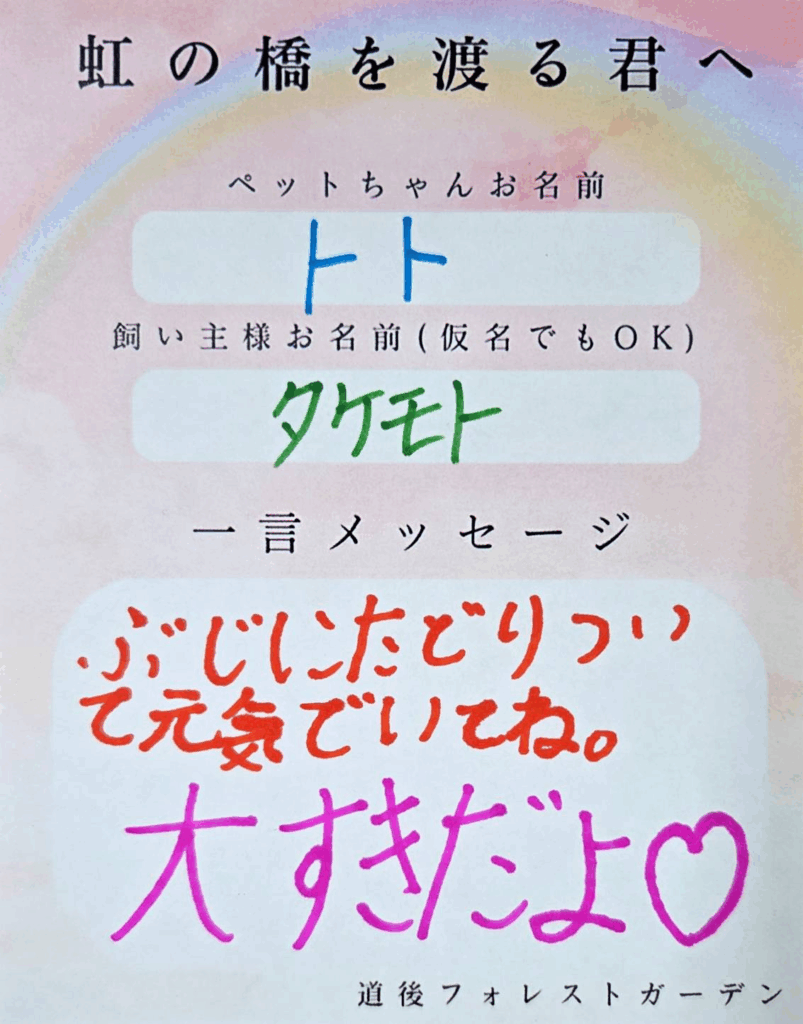 虹の橋を渡る君へ
ペットちゃんお名前
トト
飼い主様お名前(仮名でもOK)
タケモト
一言メッセージ
ぶじにたどりつい
て元気でいてね。
大すきだよ♡
道後フォレストガーデン